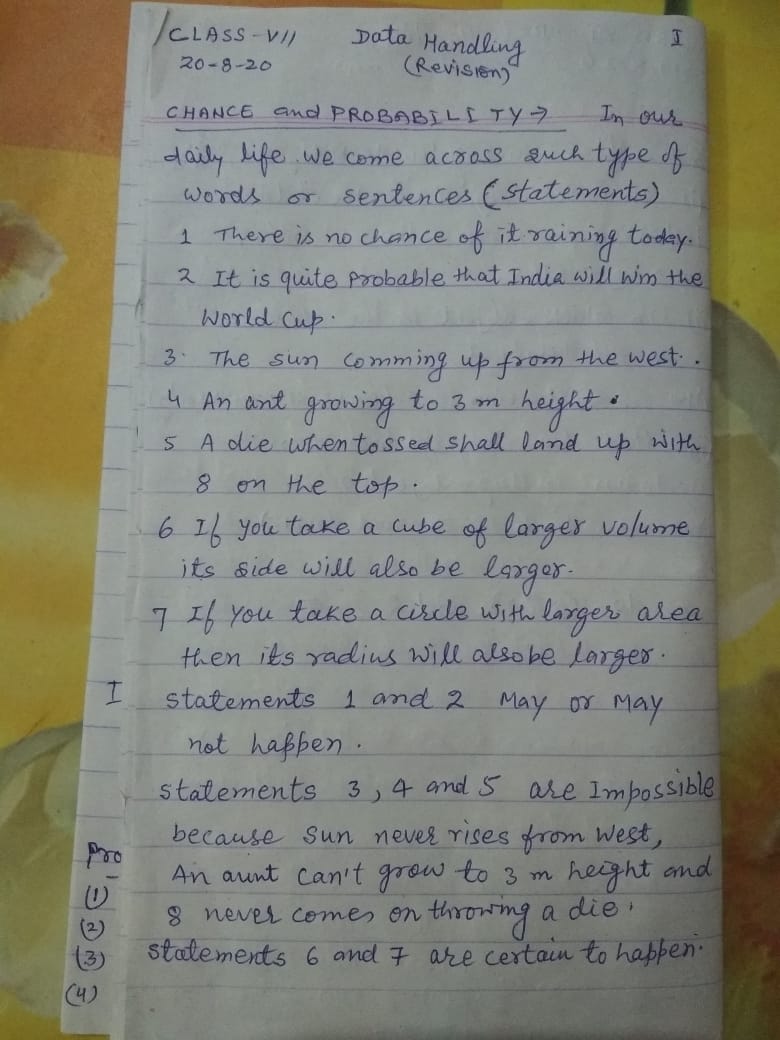 CLASS-VII Data Handling I
20-8-20 (Revision)
CHANCE and PROBABILITY → In our
daily life we come across such type of
words or sentences (statements)
1 There is no chance of it raining today.
2 It is quite probable that India will win the
World Cup.
3. The sun comming up from the west.
4 An ant growing to 3 m height.
5 A die when tossed shall land up with
8 on the top.
6 If you take a cube of larger volume
its side will also be larger.
7 If you take a circle with larger area
then its radius will also be larger.
I statements 1 and 2 May or May
not happen.
statements 3, 4 and 5 are Impossible
because sun never rises from west,
Pro
An aunt can't grow to 3 m height and
(1)
8 never comes on throwing a die.
(2)
(3) statements 6 and 7 are certain to happen.
(4)